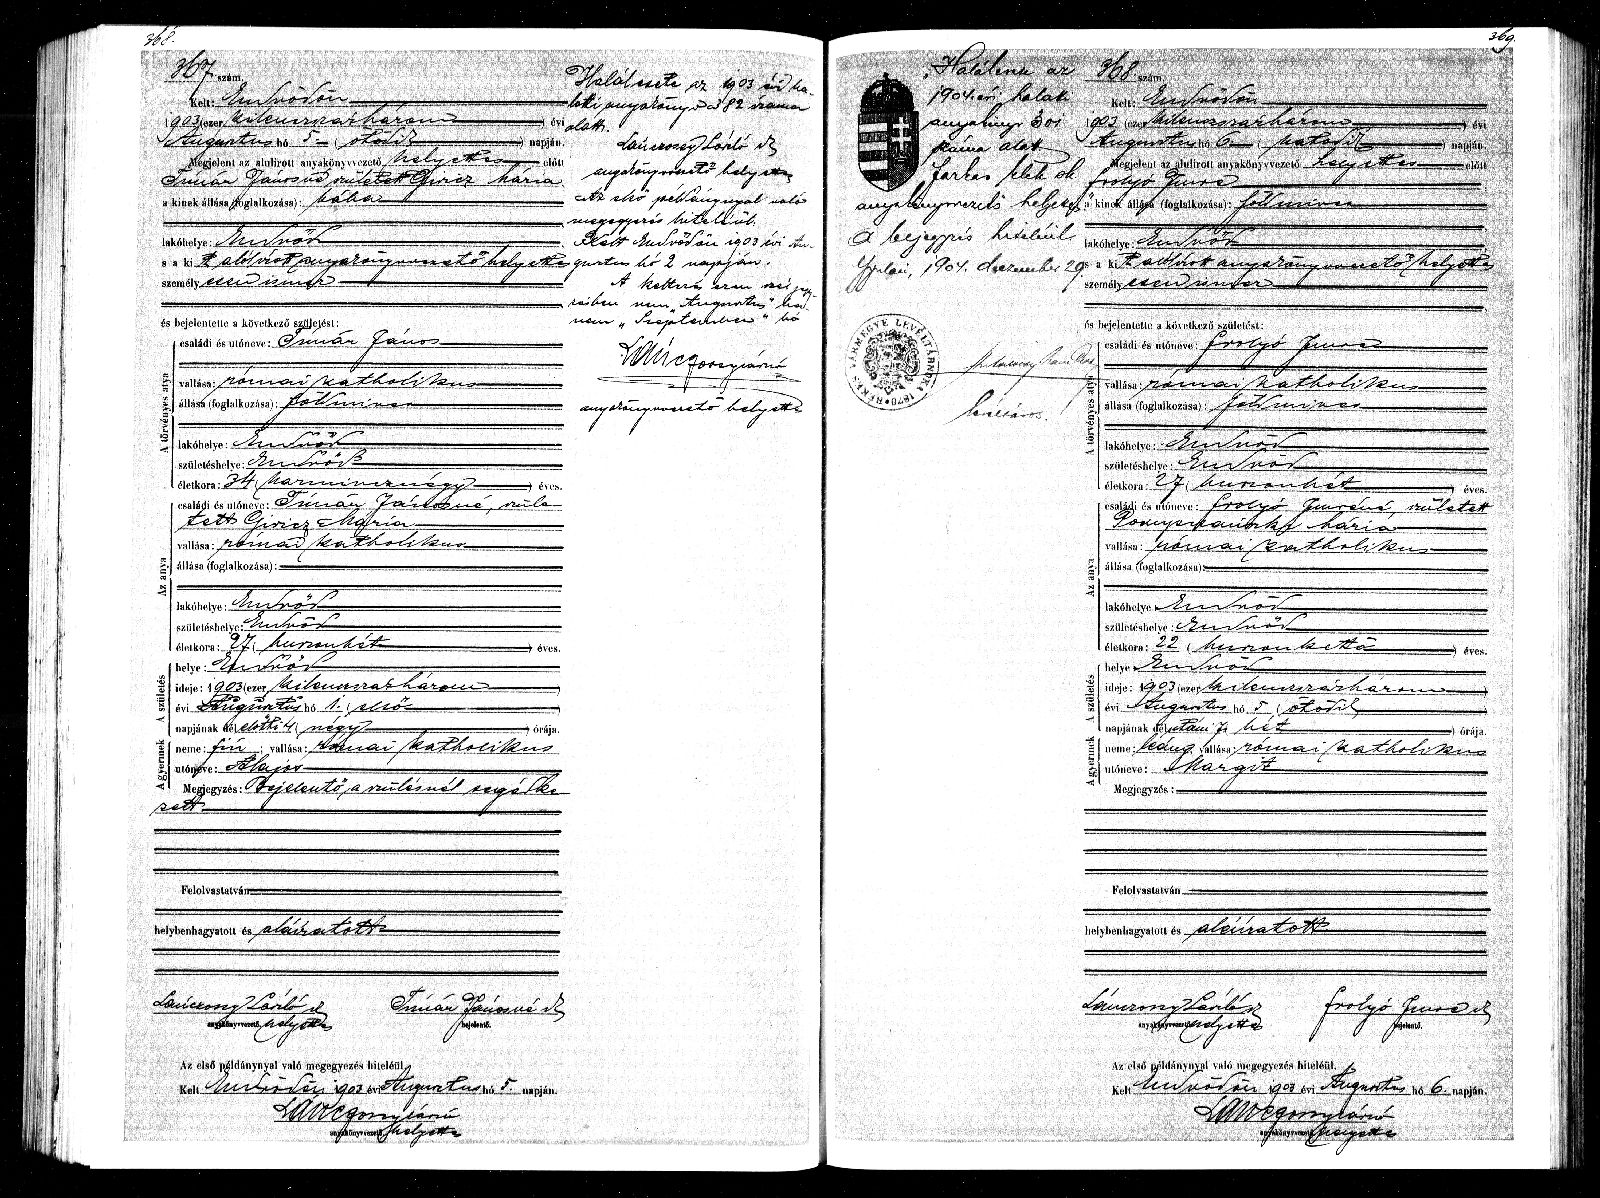 368.
367 szám.
Kelt: Endrődön
1903 (ezer kilenczszázhárom) évi
Augustus hó 5 (ötödik) napján.
Megjelent az alulirott anyakönyvvezető helyettes előtt
Tímár Jánosné született Giricz Mária
a kinek állása (foglalkozása): bába
lakóhelye: Endrőd
s a kit alólirott anyakönyvvezető helyettes
személyesen ismer
és bejelentette a következő születést:
A törvényes atya
családi és utóneve: Tímár János
vallása: római katholikus
állása (foglalkozása): földmíves
lakóhelye: Endrőd
születéshelye: Endrőd
életkora: 34 (harmincznégy) éves.
Az anya
családi és utóneve: Tímár Jánosné, szüle-
tett Giricz Mária
vallása: római katholikus
állása (foglalkozása):
lakóhelye: Endrőd
születéshelye: Endrőd
életkora: 27 (huszonhét) éves.
A születés
helye: Endrőd
ideje: 1903 (ezer kilenczszázhárom)
évi Augustus hó 1. (első)
napjának délelőtti 4 (négy) órája.
A gyermek
neme: fiú; vallása: római katholikus
utóneve: Alajos
Megjegyzés: Bejelentő a szülésnél segédke-
zett
Felolvastatván
helybenhagyatott és aláíratott
Lánczossy László sk Tímár Jánosné sk
anyakönyvvezető helyettes bejelentő.
Az első példánynyal való megegyezés hiteléül.
Kelt Endrődön 1903 évi Augustus hó 5. napján.
anyakönyvvezető helyettes
Halálesete az 1903 évi ha-
lotti anyakönyv 382 száma
alatt.
Lánczossy László sk
anyakönyvvezető helyettes
Az első példánynyal való
megegyezés hiteléül.
Kelt Endrődön 1903 évi Au-
gustus hó 2 napján.
A keltezés ezen
részében nem "Augustus" ha-
nem "Szeptember" hó
anyakönyvvezető helyettes
369.
"Halálesete az
1904. évi halott
anyakönyv 301
száma alatt
Farkas sk
anyakönyvvezető helyettes"
A bejegyzés hiteléül
Gyulán, 1904. deczember 29.
BÉKÉS VÁRMEGYE LEVÉLTÁRNOKA 1870
levéltáros.
368 szám.
Kelt: Endrődön
1903 (ezer kilenczszázhárom) évi
Augustus hó 6 (hatodik) napján.
Megjelent az alulirott anyakönyvvezető helyettes előtt
Frolyó Imre
a kinek állása (foglalkozása): földmíves
lakóhelye: Endrőd
s a kit alólirott anyakönyvvezető helyettes
személyesen ismer
és bejelentette a következő születést:
A törvényes atya
családi és utóneve: Frolyó Imre
vallása: római katholikus
állása (foglalkozása): földmíves
lakóhelye: Endrőd
születéshelye: Endrőd
életkora: 27 (huszonhét) éves.
Az anya
családi és utóneve: Frolyó Imréné, született
Mária
vallása: római katholikus
állása (foglalkozása):
lakóhelye: Endrőd
születéshelye: Endrőd
életkora: 22 (huszonkettő) éves.
A születés
helye: Endrőd
ideje: 1903 (ezer kilenczszázhárom)
évi Augustus hó 5 (ötödik)
napjának délutáni 7 (hét) órája.
A gyermek
neme: leány; vallása: római katholikus
utóneve: Margit
Megjegyzés:
Felolvastatván
helybenhagyatott és aláíratott
Lánczossy László sk Frolyó Imre sk
anyakönyvvezető helyettes bejelentő.
Az első példánynyal való megegyezés hiteléül.
Kelt Endrődön 1903 évi Augustus hó 6. napján.
anyakönyvvezető helyettes